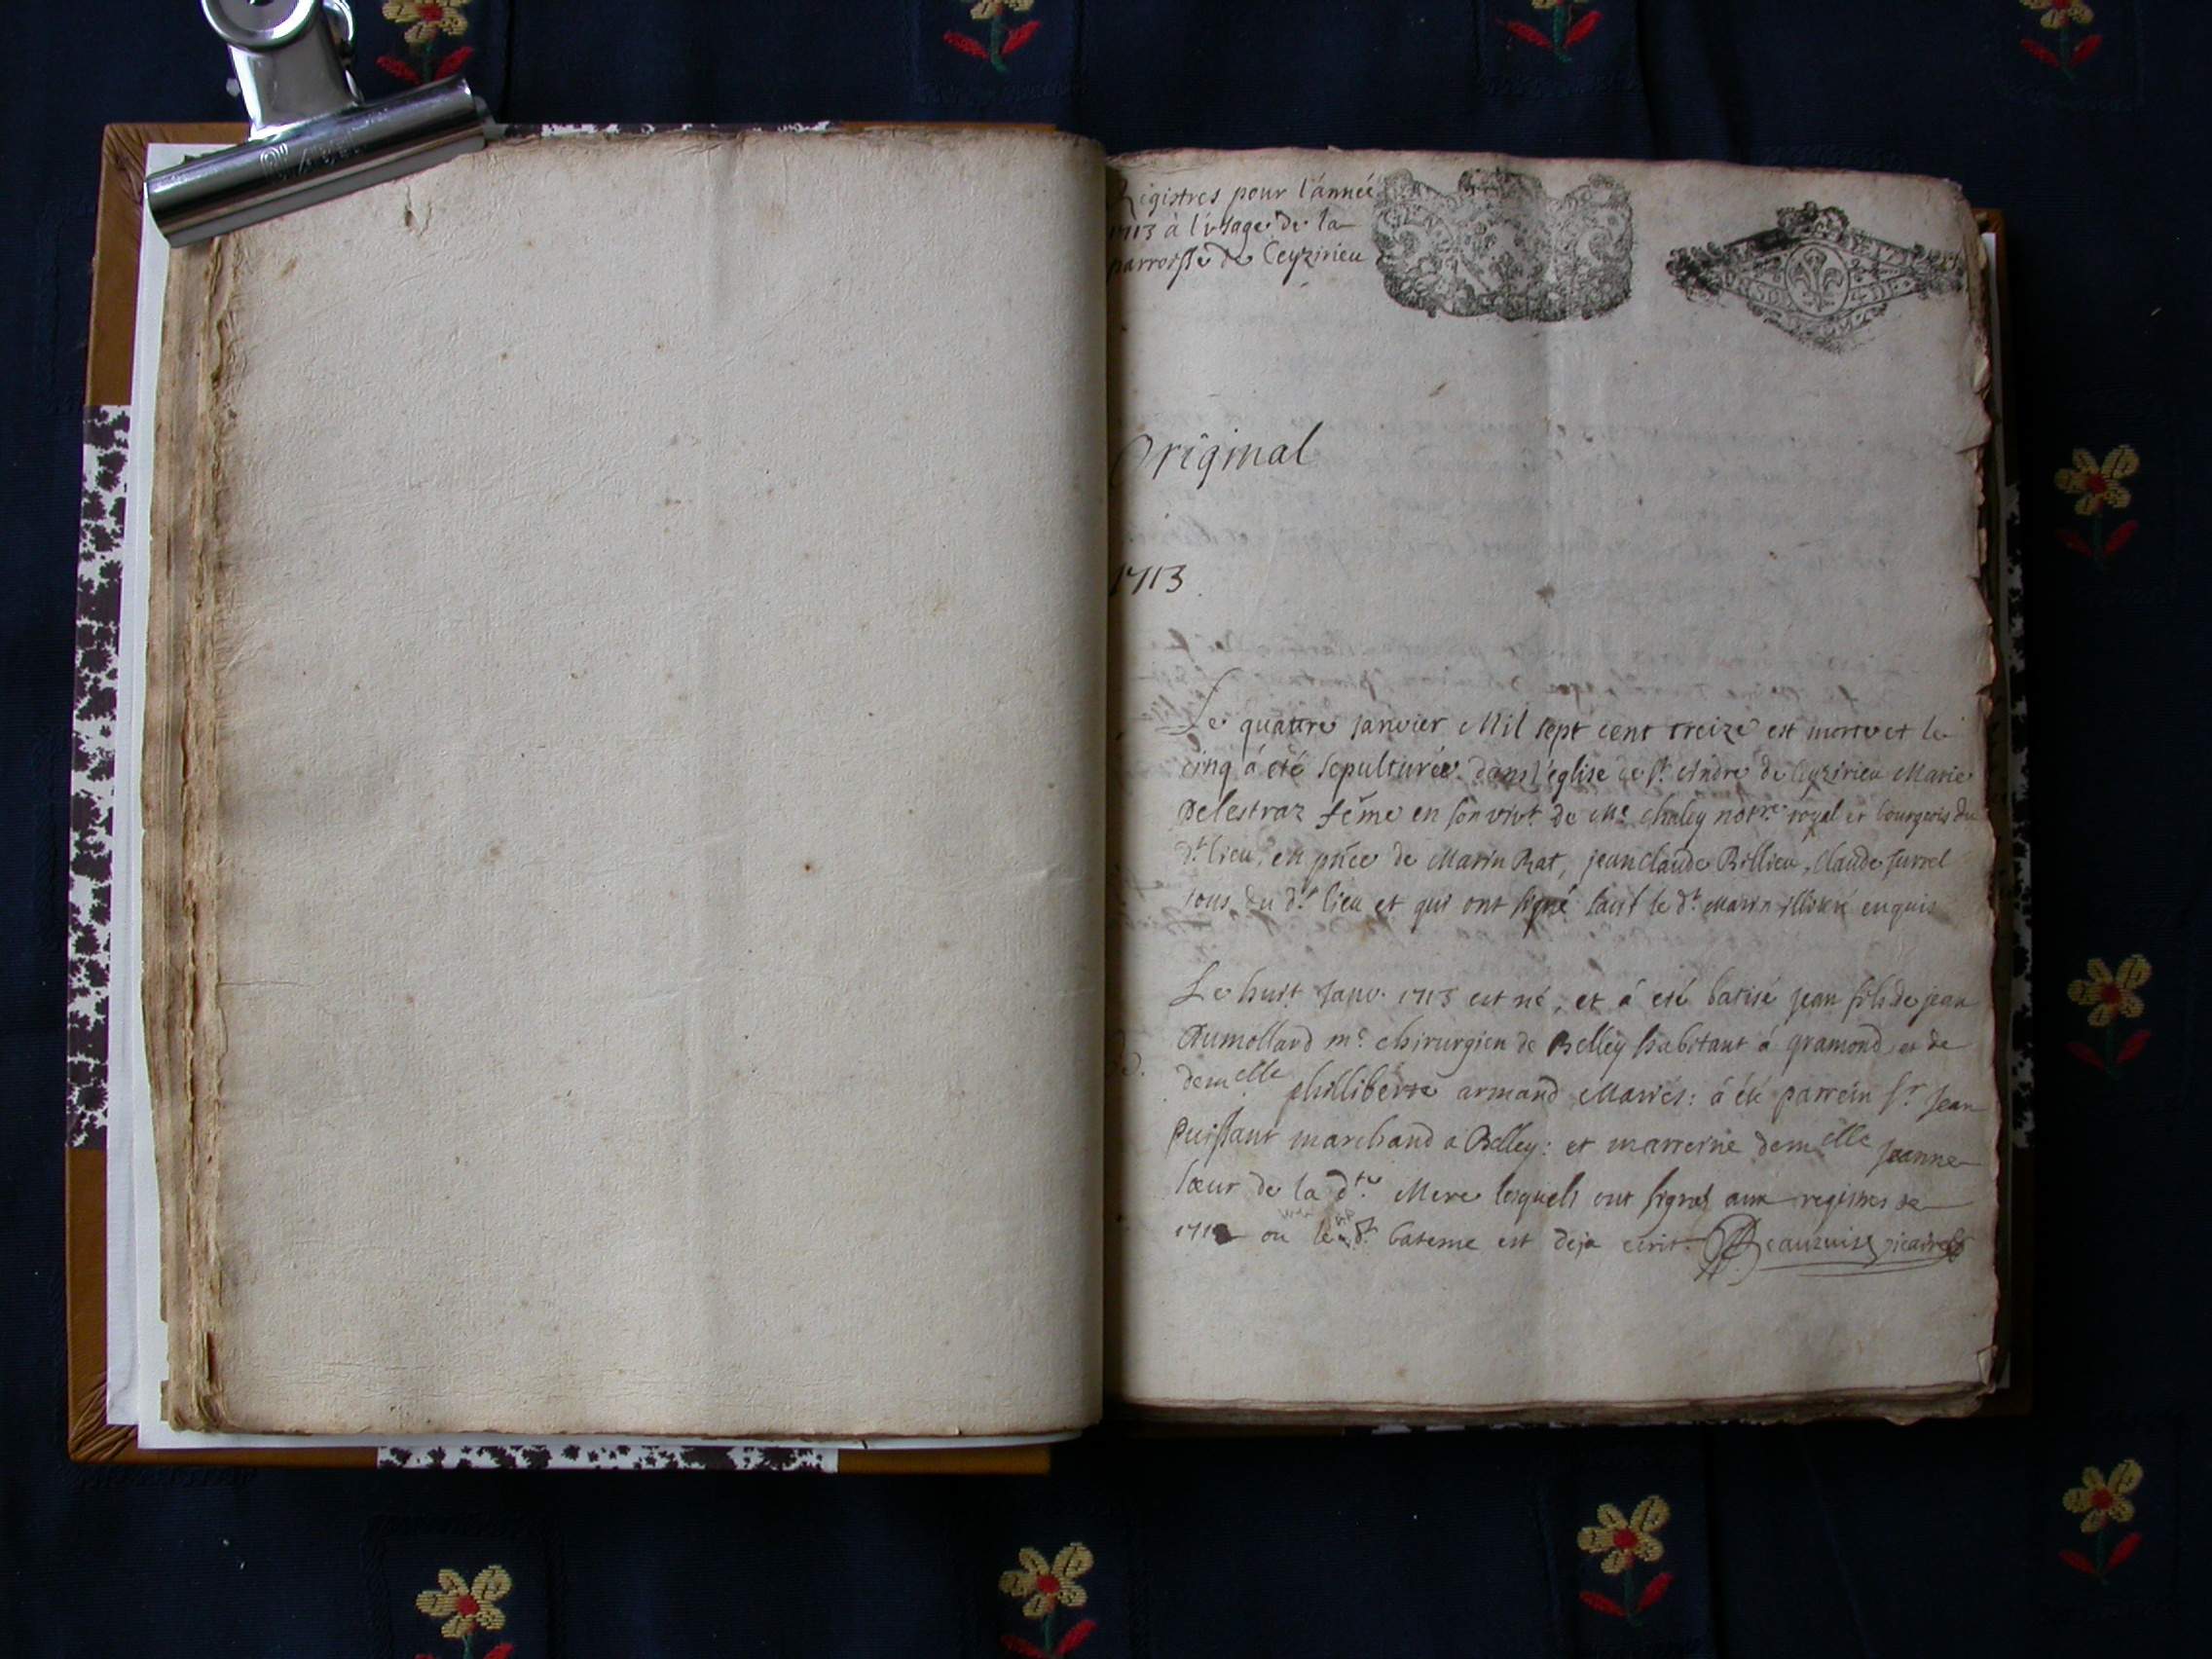 Registres pour l'année
1713 à l'usage de la
parroisse de Ceyzirieu
Original
1713
Le quattre janvier Mil sept cent treize est morte et le
cinq á eté sepulturée dans l'eglise de st. Andre de Ceyzirieu Marie
Delestraz féme en son vivt. de Me. Chaley notre. royal et bourgeois du
dt. lieu, en pñce de Marin Rat, jean claude Billieu, Claude surrel
tous du dt. lieu et qui ont signé sauf le dt. Marin illitéré enquis
Le huit Janv. 1713 est né, et á eté batisé jean fils de jean
Dumollard me. chirurgien de Belley habitant á gramond et de
demelle philliberte armand Mariés: á été parrein sr. Jean
Puissant marchand a Belley: et marreine demelle jeanne
sœur de la dte. Mere lesquels ont signés aux registres de
1712 ou le dt. bateme est deja ecrit. Beauzuisz vicaire